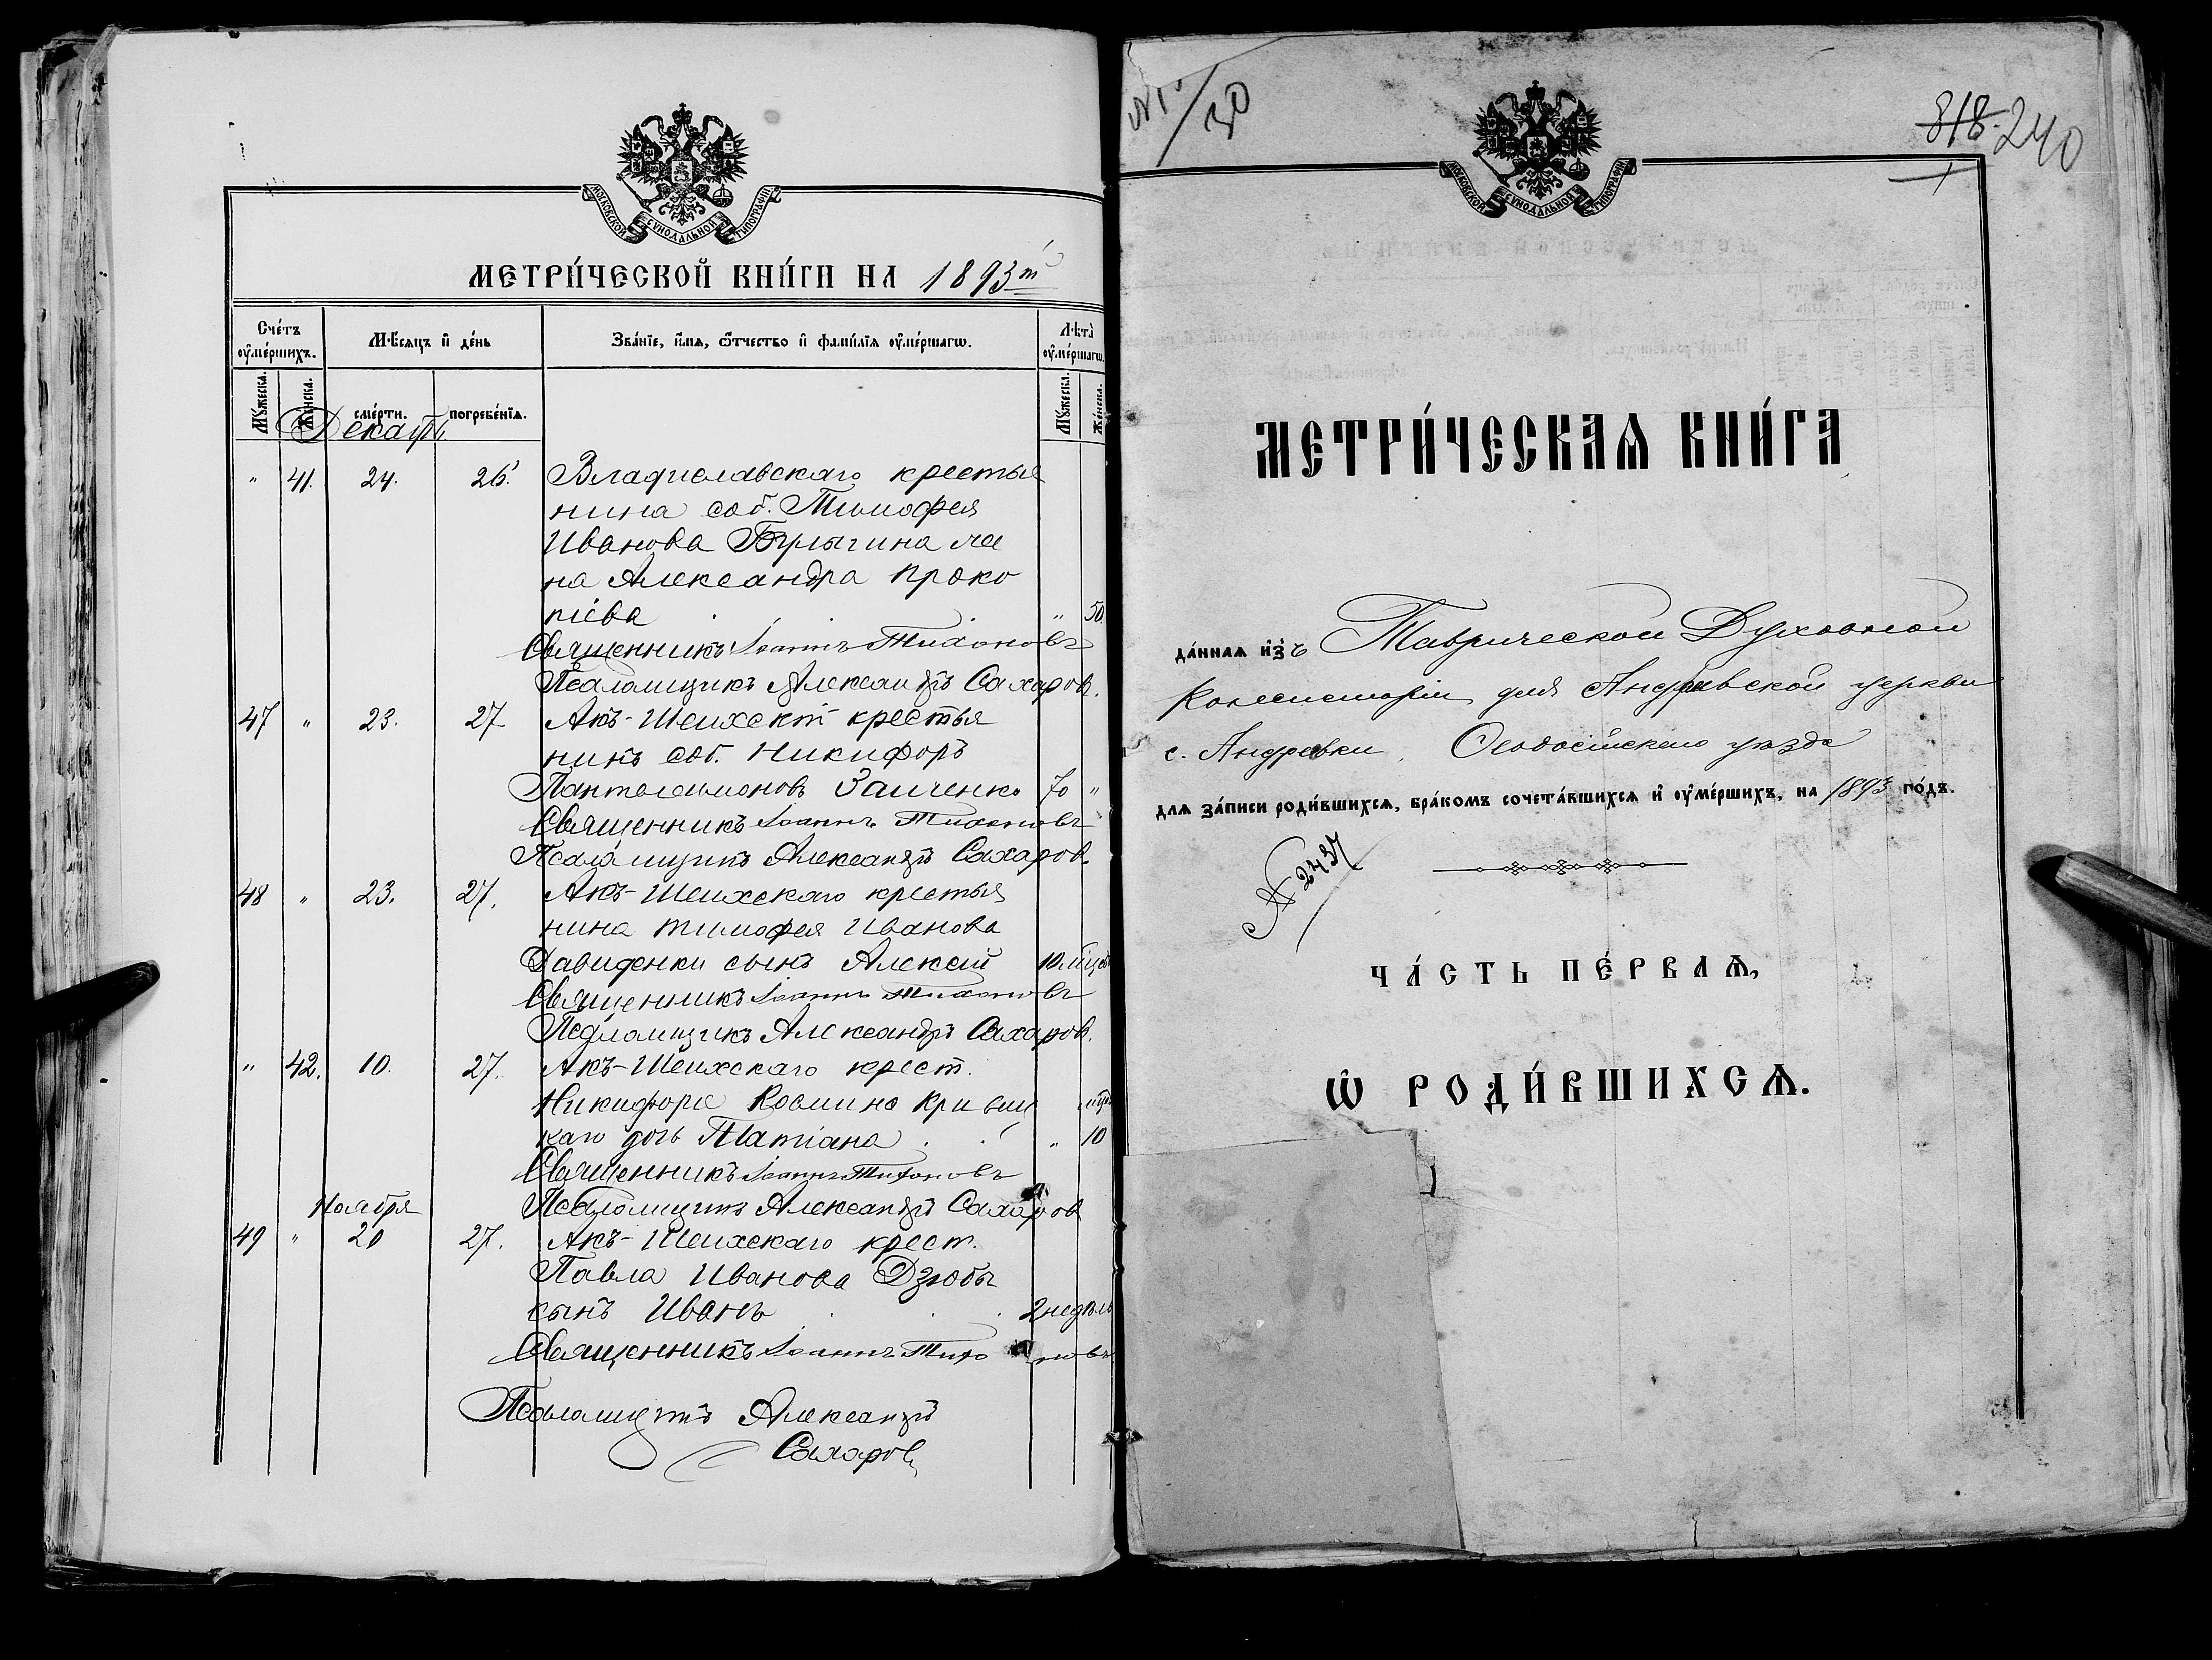 МОСКОВСКОЙ СѴНОДАЛЬНОЙ ТИПОГРАФІИ
МЕТРИ́ЧЕСКОЙ КНИ́ГИ НА 1893 г
Сче́тъ оу҆ме́ршихъ.
Мѣ́сяцъ и҆ де́нь
Зва́нїе, и҆́мѧ, ѻ҆́тчество и҆ фамилїѧ оу҆ме́ршагѡ.
Лѣ́та оу҆ме́ршагѡ.
Мꙋ́жеска.
Же́нска.
сме́рти.
погребе́нїѧ.
Мꙋ́жеска.
Же́нска.
Декабрь
" 41. 24. 26. Владиславскаго крестья
нина соб. Тимофея
Иванова Булыгина же
на Александра Проко
піева " 50.
Священникъ Іоаннъ Тихоновъ
Псаломщикъ Александръ Сахаровъ.
47 " 23. 27 Акъ-Шеихскій крестья
нинъ соб. Никифоръ
Пантелеимоновъ Заиченко 70 "
Священникъ Іоаннъ Тихоновъ
Псаломщикъ Александръ Сахаровъ.
48 " 23. 27. Акъ-Шеихскаго крестья
нина Тимофея Иванова
Давиденки сынъ Алексей 10
Священникъ Іоаннъ Тихоновъ
Псаломщикъ Александръ Сахаровъ.
" 42. 10. 27. Акъ-Шеихскаго крест.
Никифора Космина Криниц
каго дочь Татіана " 10
Священникъ Іоаннъ Тихоновъ
Псаломщикъ Александръ Сахаровъ
Ноября
49 " 20 27. Акъ-Шеихскаго крест.
Павла Иванова Дзюбы
сынъ Иванъ 2 недѣль
Священникъ Іоаннъ Тихоновъ
Псаломщикъ Александръ
Сахаровъ
30
818. 240
МОСКОВСКОЙ СѴНОДАЛЬНОЙ ТИПОГРАФІИ
МЕТРИ́ЧЕСКАѦ КНИ́ГА
да́ннаѧ и҆зъ Таврической Духовной
Консисторіи для Андреевской церкви
с. Андреевки, Ѳеодосійскаго уѣзда
для за́писи роди́вшихсѧ, бра́комъ сочета́вшихсѧ и҆ оу҆ме́ршихъ, на 1893 го́дъ.
№ 2437
ЧА́СТЬ ПЕ́РВАѦ,
Ѡ҆ РОДИ́ВШИХСѦ.